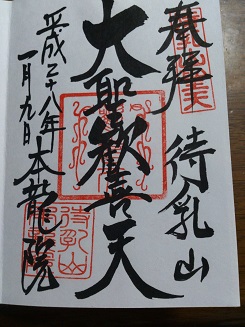 奉拝
待乳山
大聖歓喜天
平成二十八年
一月九日
本龍院
待乳山